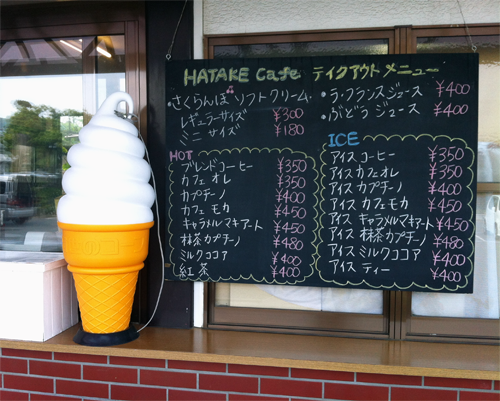 HATAKE Cafe テイクアウトメニュー
さくらんぼソフトクリーム
レギュラーサイズ ¥300
ミニサイズ ¥180
・ラ・フランスジュース ¥400
・ぶどうジュース ¥400
HOT
ブレンドコーヒー ¥350
カフェオレ ¥350
カプチーノ ¥400
カフェモカ ¥450
キャラメルマキアート ¥450
抹茶カプチーノ ¥480
ミルクココア ¥400
紅茶 ¥400
ICE
アイスコーヒー ¥350
アイスカフェオレ ¥350
アイスカプチーノ ¥400
アイスカフェモカ ¥450
アイスキャラメルマキアート ¥450
アイス抹茶カプチーノ ¥480
アイスミルクココア ¥400
アイスティー ¥400